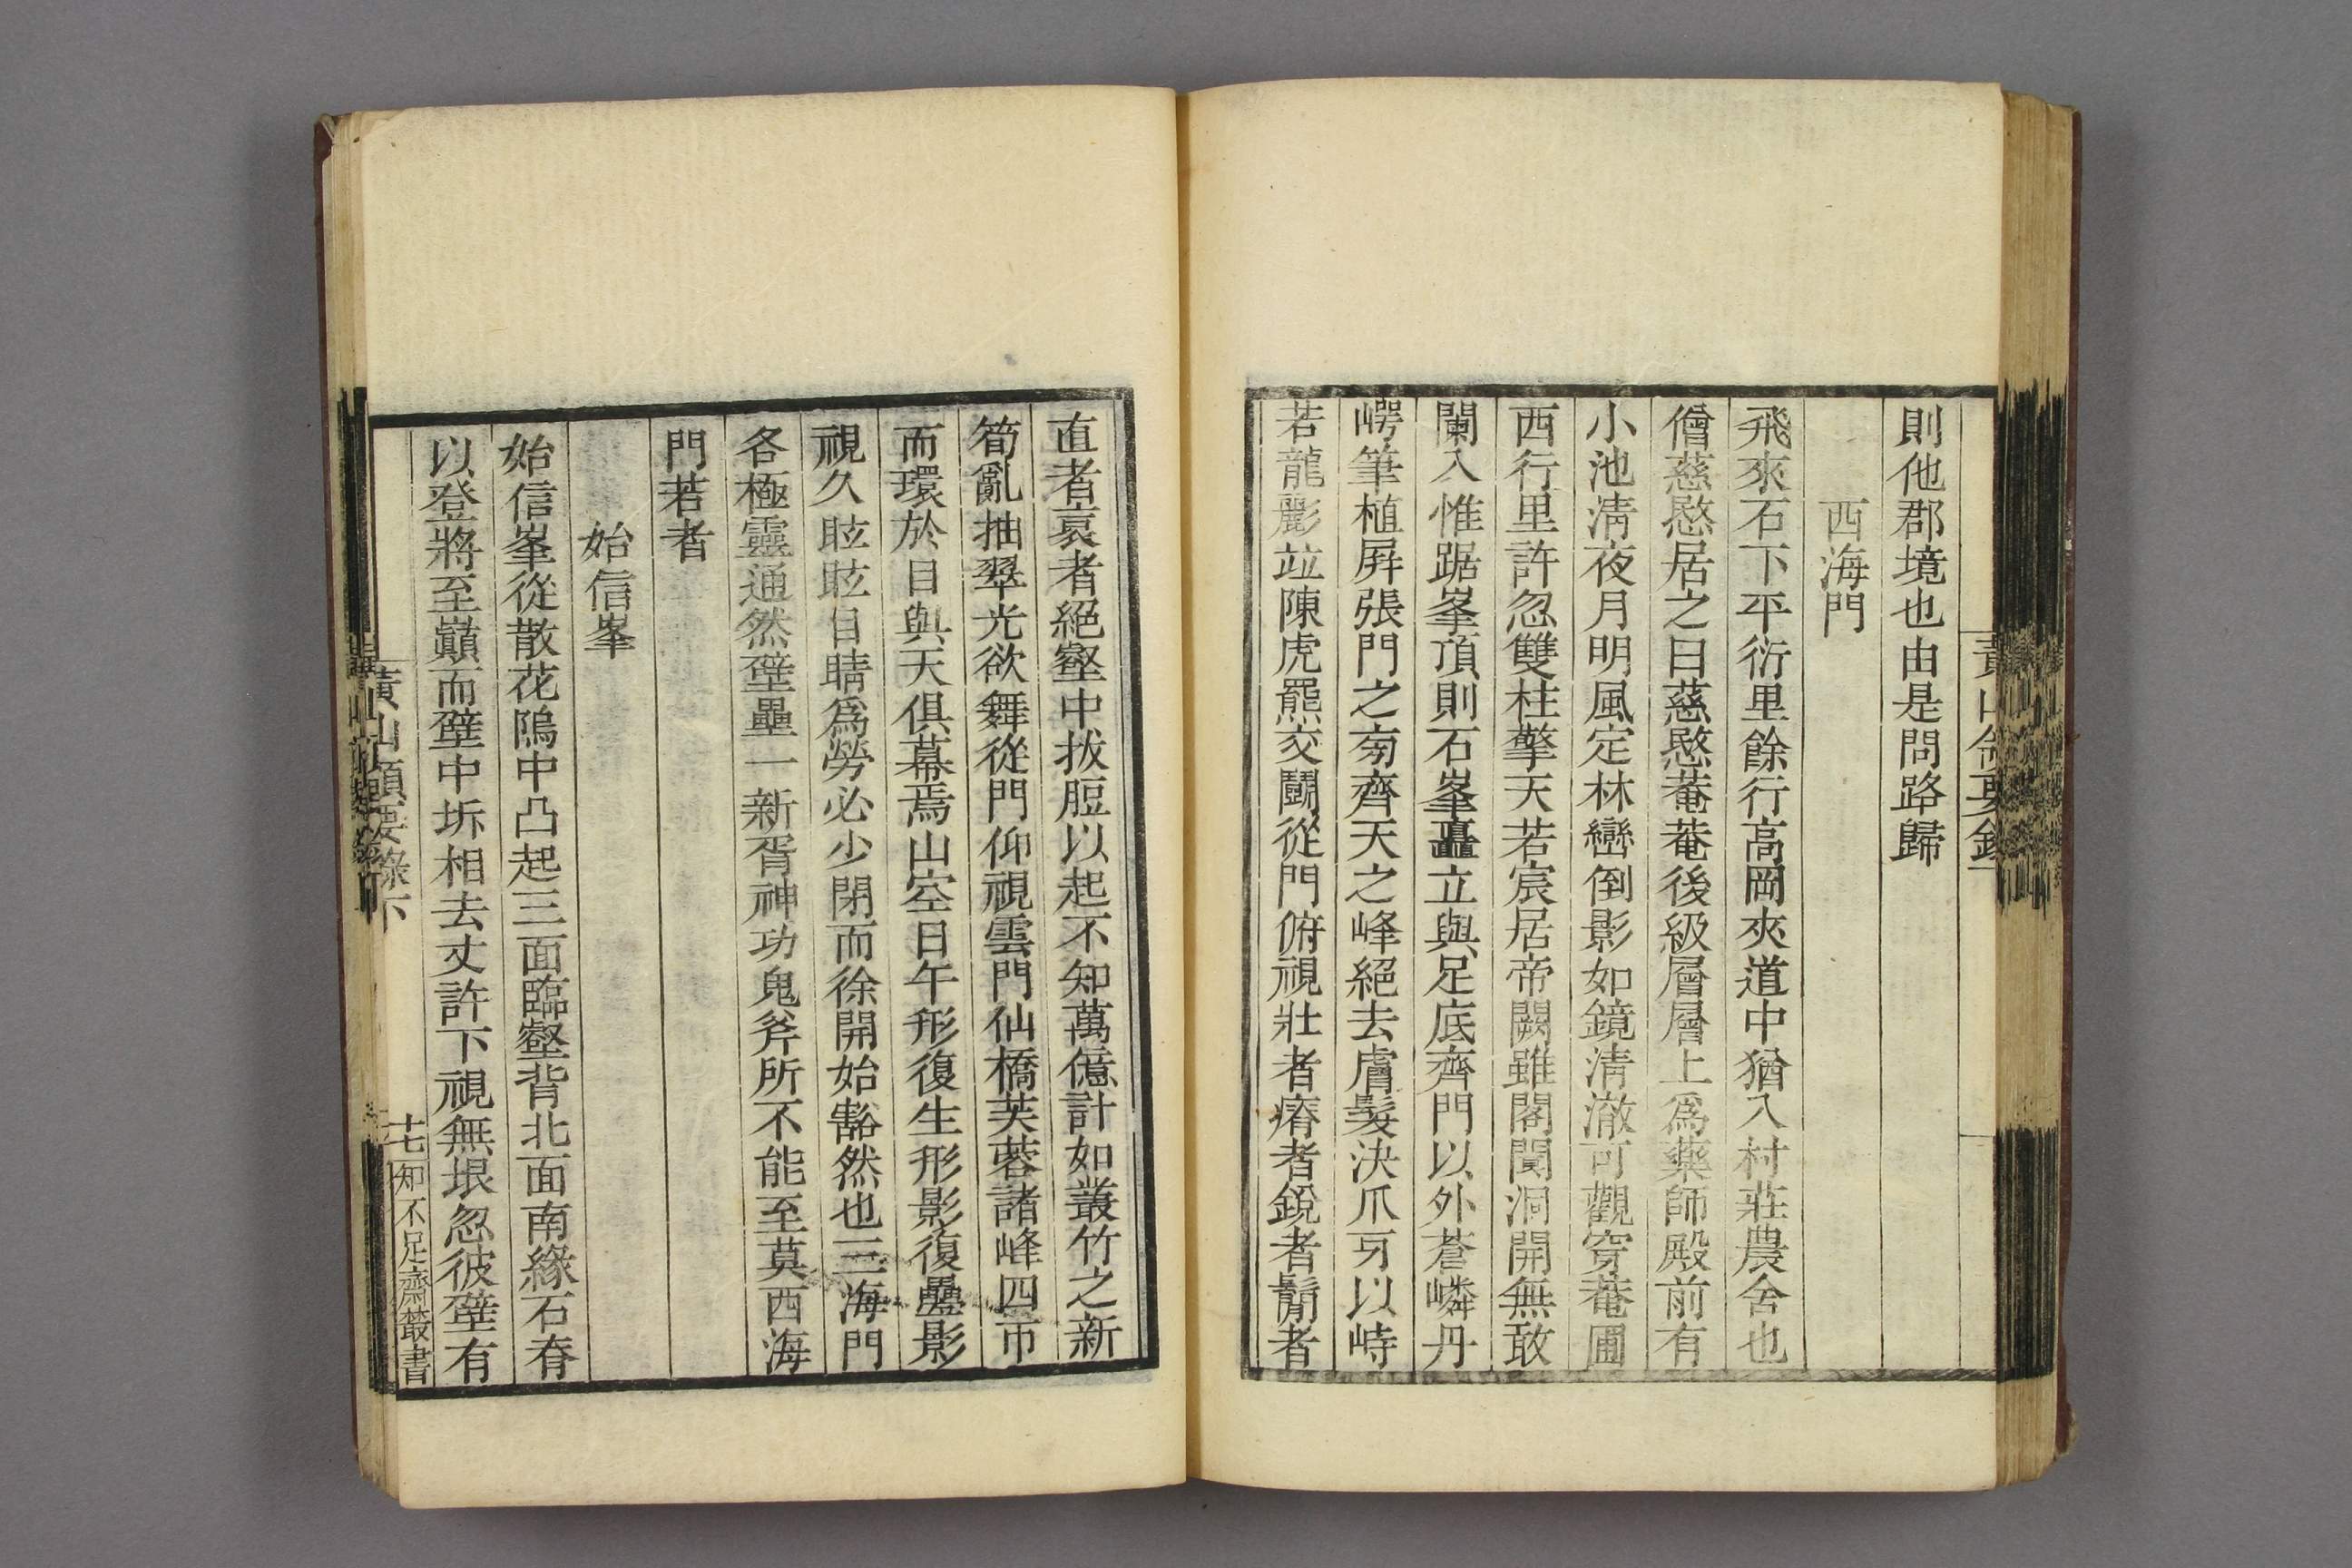 則他郡境也由是問路歸
西海門
飛來石下平衍里餘行高岡夾道中猶入村莊農舍也
僧慈愍居之曰慈愍菴菴後級層層上爲藥師殿前有
小池淸夜月明風定林巒倒影如鏡淸澈可觀穿菴圃
西行里許忽雙柱擎天若宸居帝闕雖閣闃洞開無敢
闌入惟踞峯頂則石峯矗立與足底齊門以外蒼嶙丹
崿筆植屛張門之南齊天之峰絕去膚髮決爪牙以峙
若龍彲竝陳虎羆交鬬從門俯視壯者瘠者銳者鬅者
直者裒者絕壑中拔脰以起不知萬億計如叢竹之新
筍亂抽翠光欲舞從門仰視雲門仙橋芙蓉諸峰四帀
而環於目與天俱幕焉山空日午形復生形影復疊影
視久眩眩目睛爲勞必少閉而徐開始豁然也三海門
各極靈通然壁壘一新胥神功鬼斧所不能至莫西海
門若者
始信峯
始信峯從散花塢中凸起三面臨壑背北面南緣石脊
以登將至巓而壁中坼相去丈許下視無垠忽彼壁有
黃山領要錄下
十七
知不足齋叢書